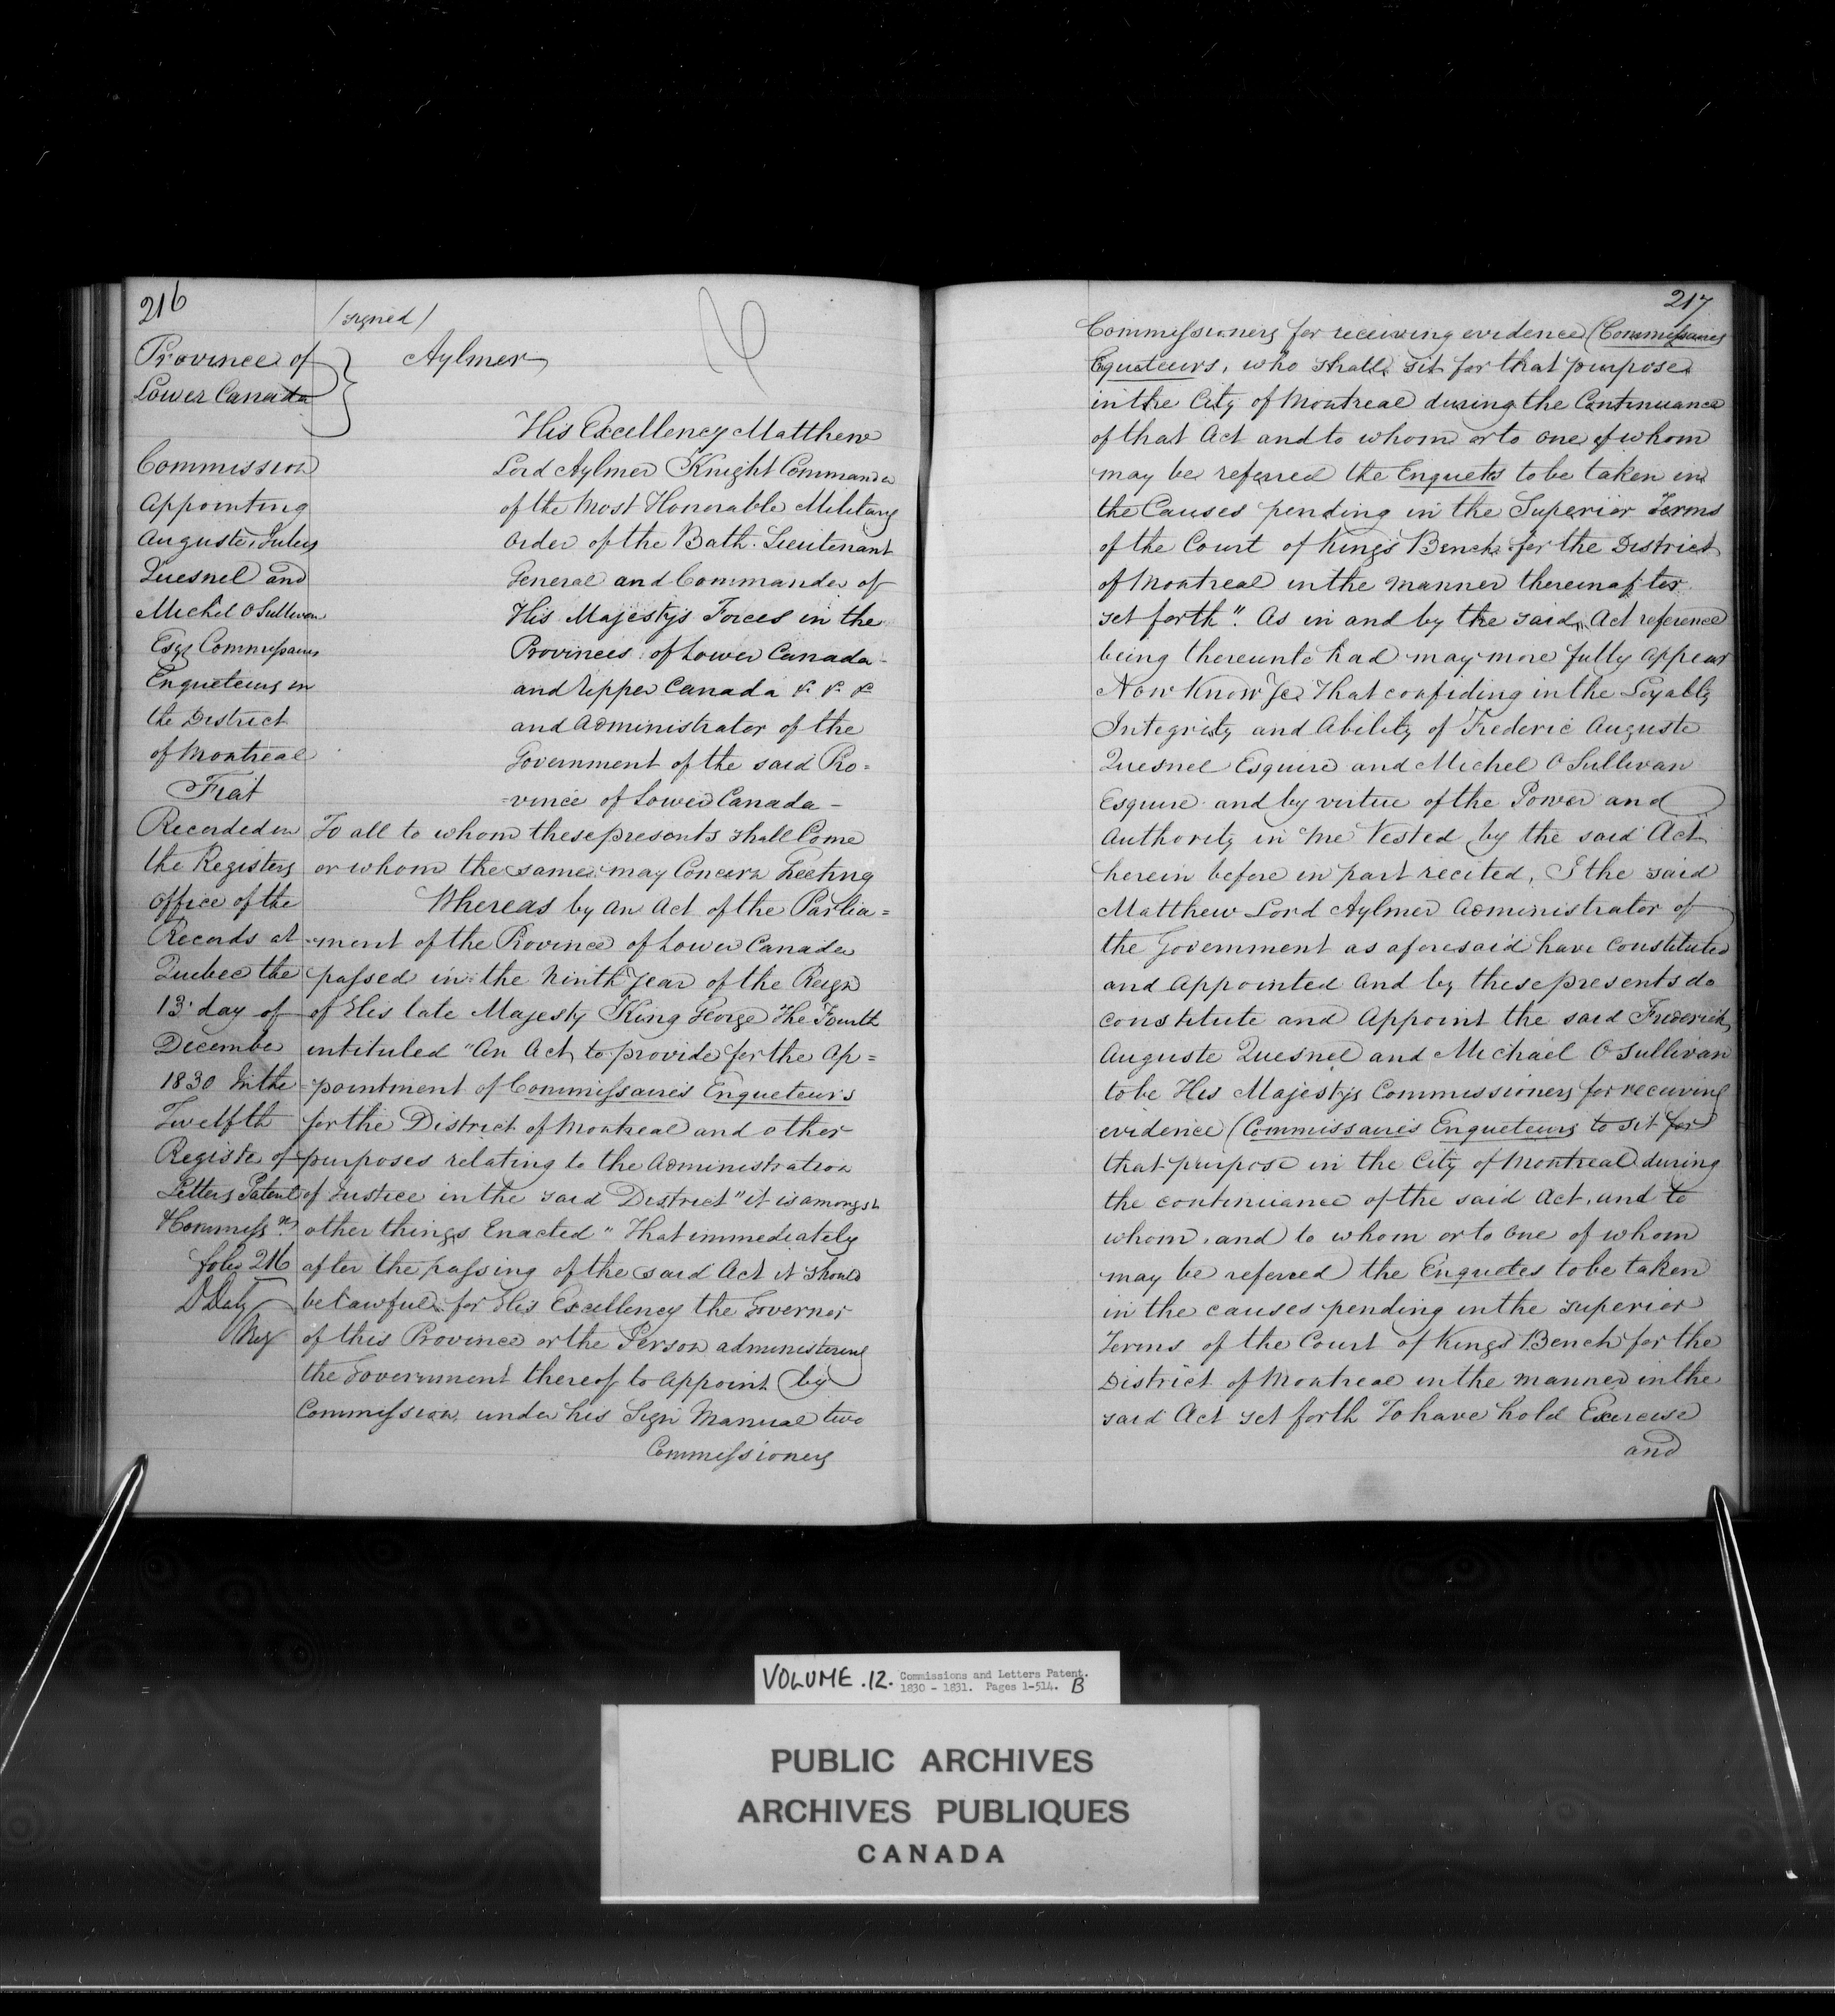 216
(signed)
Province of
Lower Canada
Aylmer
Commission
Appointing
Auguste, Jules
Quesnel and
Michel O Sullivan
Esqs Commissaires
Enqueteurs in
the District
of Montreal
Fiat
Recorded in
the Registers
office of the
Records at
Quebec the
13 day of
December
1830 In the
Twelfth
Register of
Letters Patent
& Commissns
folio 216
D Daly
Reg
His Excellency Matthew
Lord Aylmer Knight Commander
of the Most Honorable Military
Order of the Bath. Lieutenant
General and Commander of
His Majestys Forces in the
Provinces of Lower Canada
and Upper Canada &c &c &c
and Administrator of the
Government of the said Pro=
=vince of Lower Canada –
To all to whom these presents shall Come
or whom the same may Concern Greeting
Whereas by An Act of the Parlia=
=ment of the Province of Lower Canada
passed in the Ninth Year of the Reign
of His late Majesty King George The Fourth
intituled "An Act, to provide for the Ap=
=pointment of Commissaires Enqueteurs
for the District of Montreal and other
purposes relating to the Administration
of Justice in the said District" it is amongst
other things Enacted "That immediately
after the passing of the said Act it should
be lawful for His Excellency the Governor
of this Province or the Person administering
the Government thereof to Appoint by
Commission under his Sign Manual two
Commissioners
217
Commissioners for receiving evidence (Commissaires
Equeteurs, who shall sit for that purpose
in the City of Montreal during the Continuance
of that Act and to whom or to one of whom
may be referred the Enquets to be taken in
the Causes pending in the Superior Terms
of the Court of Kings Bench for the District
of Montreal in the manner thereinafter
set forth". As in and by the said Act reference
being thereunto had may more fully appear
Now Know Ye That confiding in the Loyalty
Integrity and Ability of Frederic Auguste
Quesnel Esquire and Michel O Sullivan
Esquire and by virtue of the Power and
Authority in Me Vested by the said Act
herein before in part recited, I the said
Matthew Lord Aylmer Administrator of
the Government as aforesaid have Constituted
and Appointed and by these presents do
constitute and Appoint the said Frederick
Auguste Quesnel and Michael O Sullivan
to be His Majestys Commissioners for receiving
evidence (Commissaires Enqueteurs to sit for
that purpose in the City of Montreal during
the continuance of the said Act, und to
whom, and to whom or to one of whom
may be referred the Enquetes to be taken
in the causes pending in the Superior
Terms of the Court of Kings Bench for the
District of Montreal in the manner in the
said Act set forth To have hold Exercise
and
VOLUME .12. Commissions and Letters Patent.
1830 - 1831. Pages 1-514. B
PUBLIC ARCHIVES
ARCHIVES PUBLIQUES
CANADA